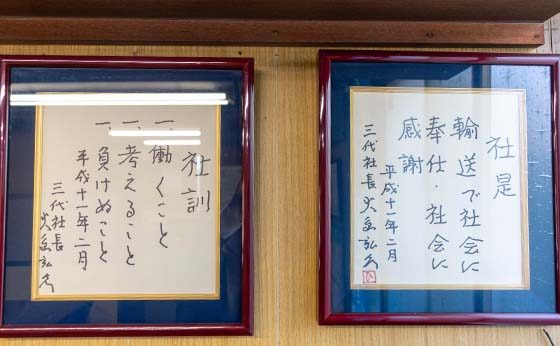 社是
輸送で社会に
奉仕・社会に
感謝
平成十一年二月
三代社長
社訓
一、働くこと
一、考えること
一、負けぬこと
平成十一年二月
三代社長